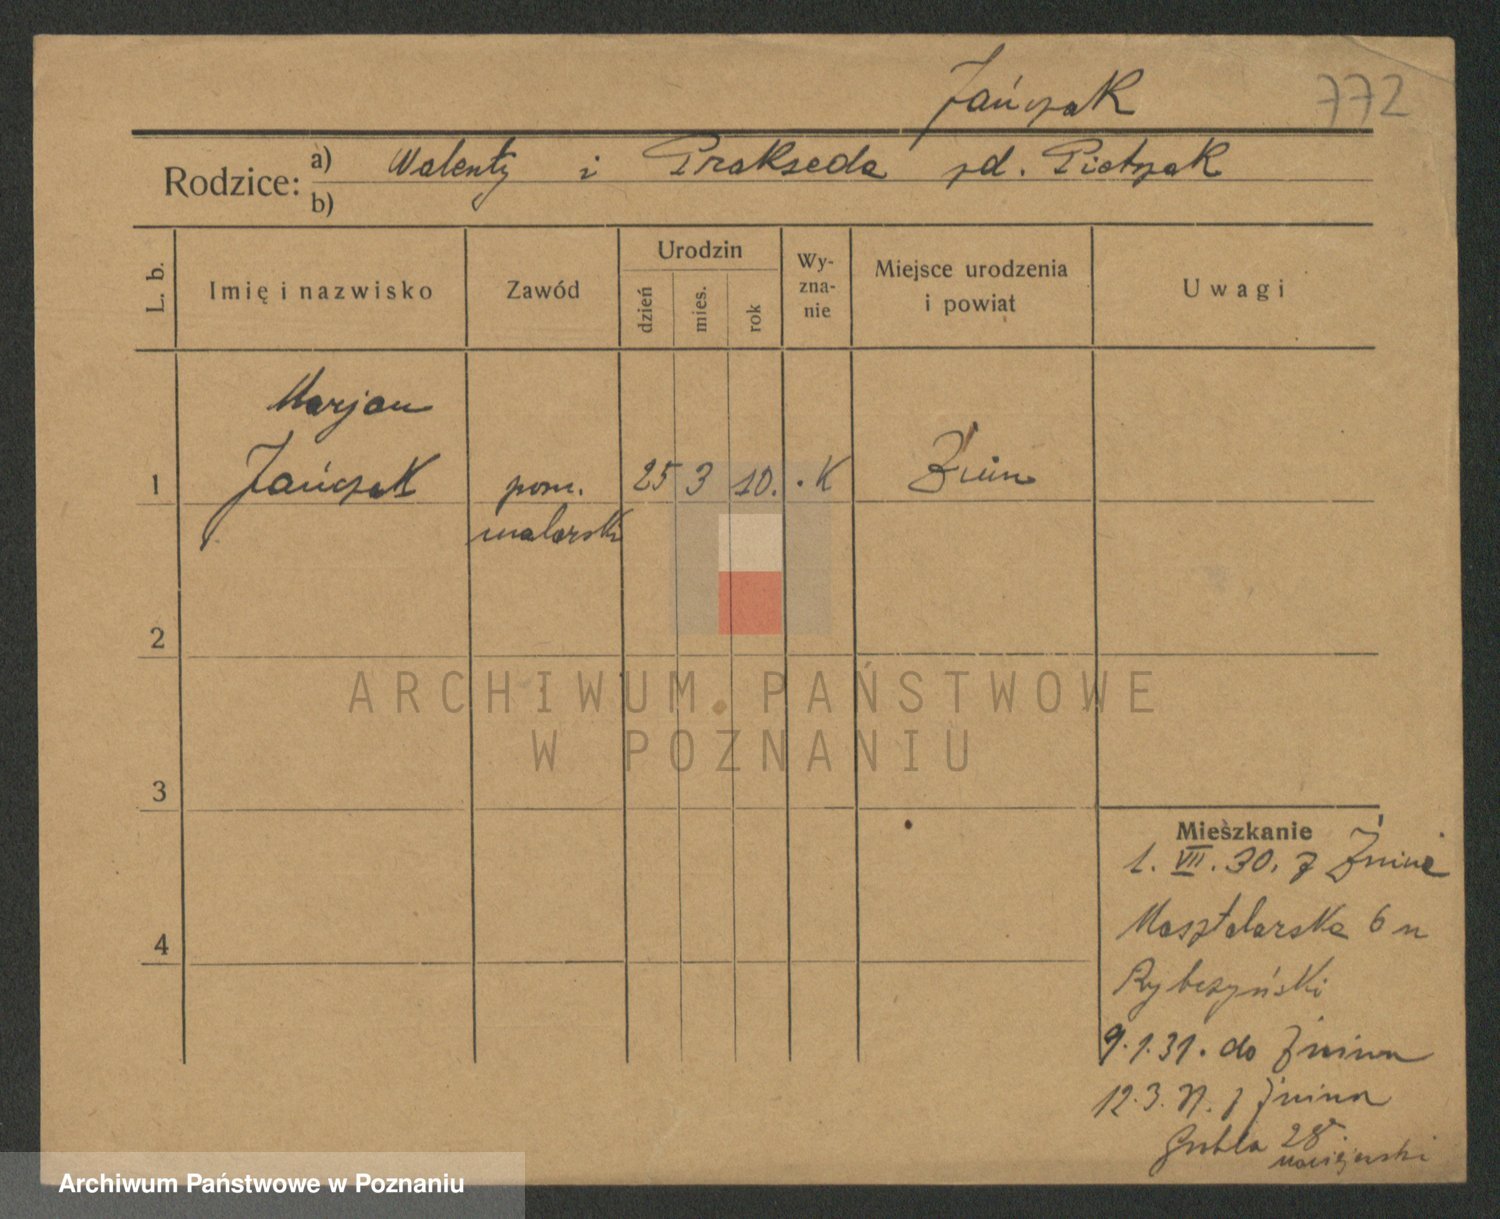 Jańczak
772
Rodzice: a) Walenty i Prakseda zd. Pietrzak
b)
L. b.
Imię i nazwisko
Zawód
Urodzin
dzień
mies.
rok
Wy-
zna-
nie
Miejsce urodzenia
i powiat
Uwagi
Marjan
1 Jańczak pom. 25 3 10. K Żnin
malarski
2
3
4
ARCHIWUM PAŃSTWOWE
W POZNANIU
Mieszkanie
1. VII. 30. z Żnina
Masztalarska 6 n
Rybczyński
9.1.31. do Żnina
12.3. 31. z Żnina
Grobla 28
Maciejewski
Archiwum Państwowe w Poznaniu